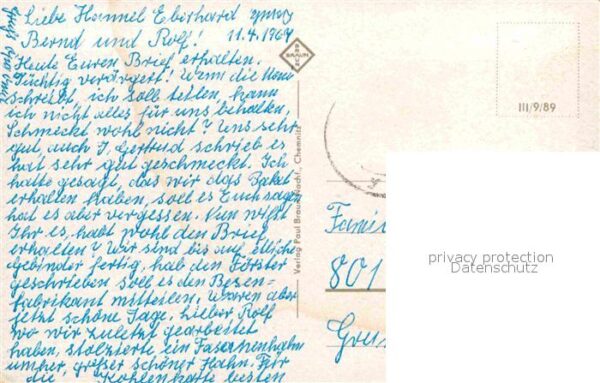 Liebe Hannel Eberhard
Bernd und Rolf! 11.4.1964
Heute Euren Brief erhalten.
Tüchtig verärgert! Wenn die
schreibt, ich soll teilen, kann
ich nicht alles für uns behalten.
Schmeckt wohl nicht? Uns sehr
gut, auch T. Gertrud schrieb es
hat sehr gut geschmeckt. Ich
hatte gesagt, das wir das Paket
erhalten haben, soll es Euch sagen
hat es aber vergessen. Nun wißt
Ihr es, habt wohl den Brief
erhalten? Wir sind bis auf etliche
gebinder fertig, hab den Förster
geschrieben soll es den Besen-
fabrikant mitteilen. Waren aber
jetzt schöne Tage. Lieber Rolf
wo wir zuletzt gearbeitet
haben, stolzierte ein Fasanenhahn
umher, großer schöner Hahn. Für
die Kohlenkarte besten
BRAUN
Verlag Paul Braun Nachf., Chemnitz
III/9/89
801
privacy protection
Datenschutz